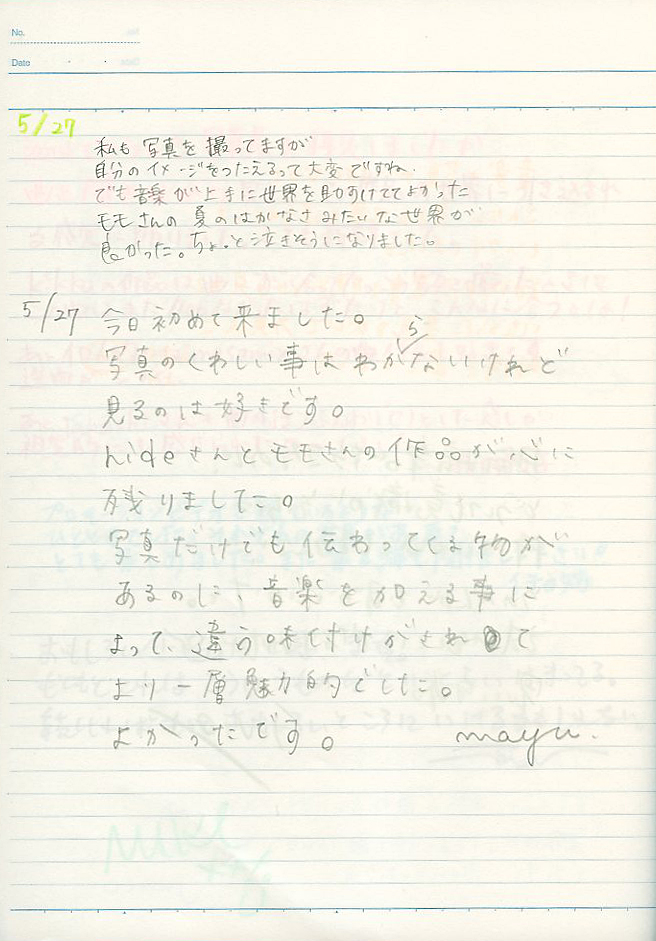 No.
Date
5/27
私も 写真を 撮ってますが
自分のイメージをつたえるって大変ですね.
でも音楽が上手に世界を助けててよかった
モモさんの 夏のはかなさみたいな世界が
良かった。ちょっと泣きそうになりました。
5/27 今日初めて来ました。
写真のくわしい事はわからないけれど
見るのは好きです。
hideさんとモモさんの作品が心に
残りました。
写真だけでも伝わってくる物が
あるのに、音楽を加える事に
よって、違う味付けがされて
より一層魅力的でした。
よかったです。 mayu.